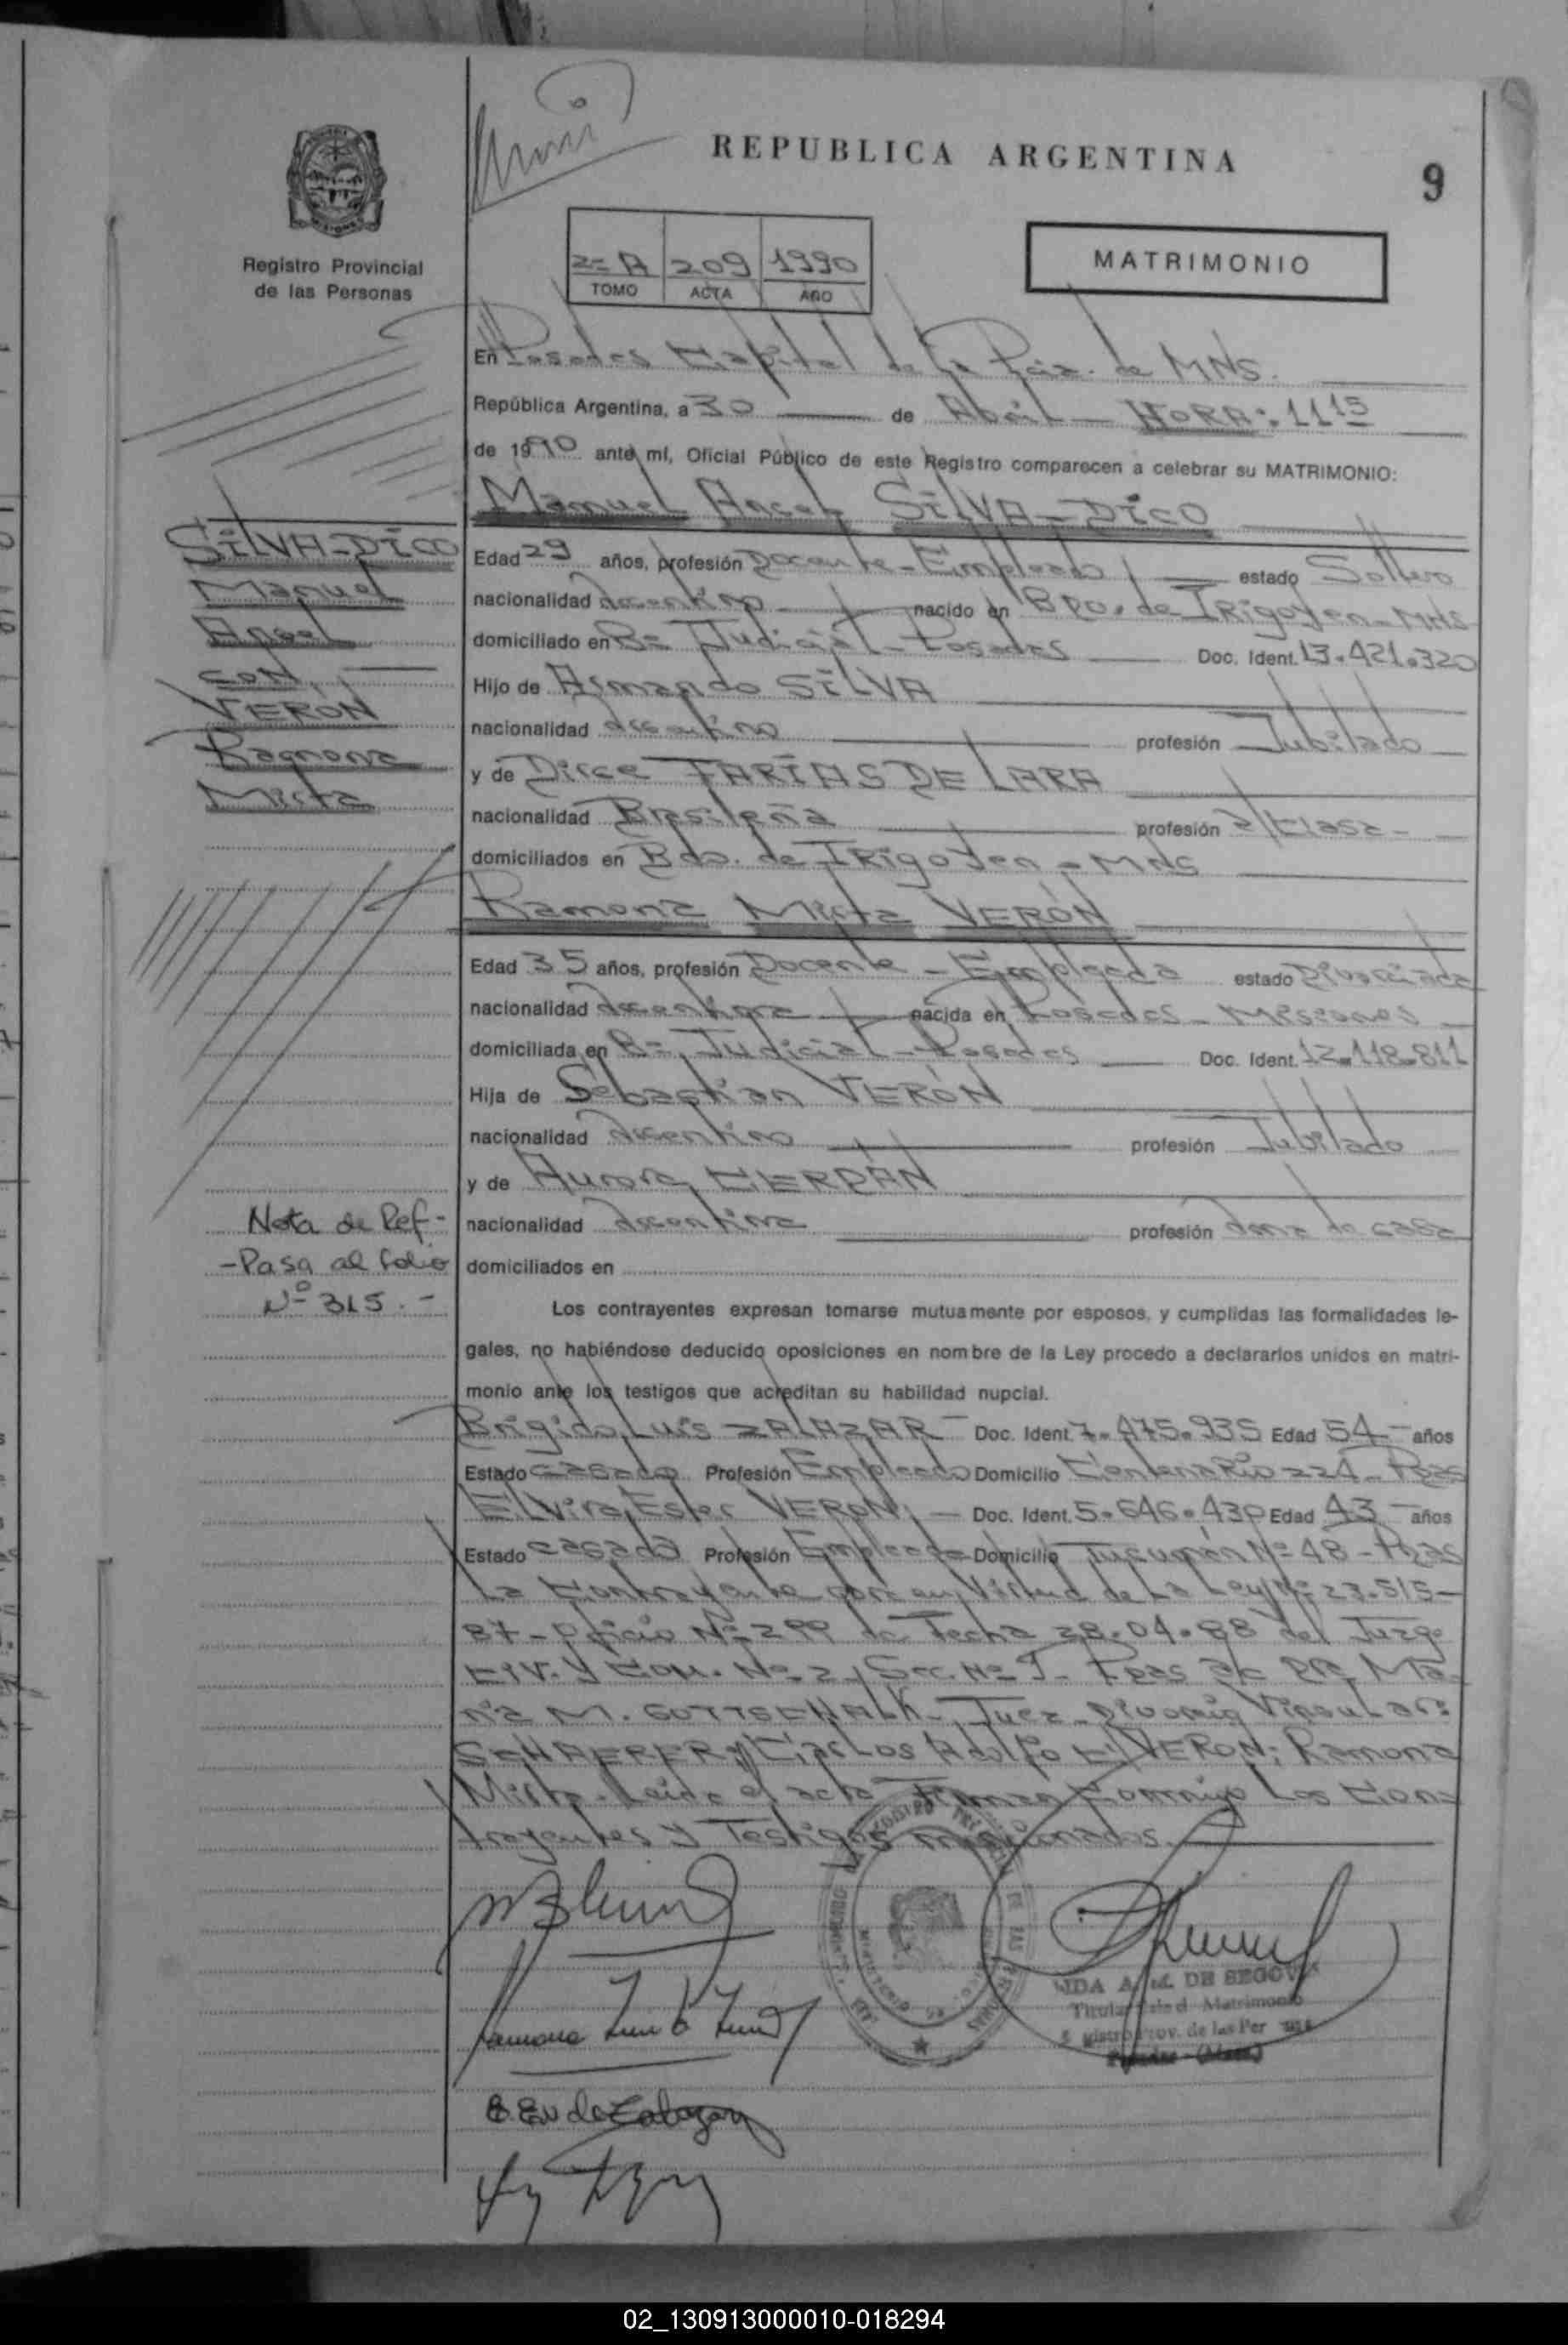 REPUBLICA ARGENTINA
9
Registro Provincial
de las Personas
2º A 209 1990
TOMO ACTA AÑO
MATRIMONIO
En Posadas Capital de la Pcia. de MNS.
República Argentina, a 30 de Abril HORA: 11 15
de 1990 ante mí, Oficial Público de este Registro comparecen a celebrar su MATRIMONIO:
Manuel Angel SILVA-DICO
SILVA-DICO
Manuel
Angel
CON
VERÓN
Ramona
Mirta
Edad 29 años, profesión Docente-Empleado estado Soltero
nacionalidad argentino nacido en Bdo. de IRigoyen-MNS
domiciliado en Bº Judicial-Posadas Doc. Ident. 13.421.320
Hijo de Armando SILVA
nacionalidad argentino profesión Jubilado
y de Dirce FARÍAS DE LARA
nacionalidad Brasileña profesión a/Casa-
domiciliados en Bdo. de IRigoyen-MNS
Ramona Mirta VERÓN
Edad 35 años, profesión Docente-Empleada estado Divorciada
nacionalidad argentina nacida en Posadas-Misiones
domiciliada en Bº Judicial-Posadas Doc. Ident. 12.118.811
Hija de Sebastian VERÓN
nacionalidad argentino profesión Jubilado
y de Aurora CERDÁN
nacionalidad argentina profesión ama de casa
domiciliados en
Nota de Ref-
-Pasa al folio
Nº 315.-
Los contrayentes expresan tomarse mutuamente por esposos, y cumplidas las formalidades le-
gales, no habiéndose deducido oposiciones en nombre de la Ley procedo a declararlos unidos en matri-
monio ante los testigos que acreditan su habilidad nupcial.
Brígido Luis ZALAZAR Doc. Ident. 7.475.935 Edad 54 años
Estado casado Profesión Empleado Domicilio Centenario 224-Pdas
Elvira Ester VERON Doc. Ident. 5.646.430 Edad 43 años
Estado casada Profesión Empleada Domicilio Tucumán Nº 48-Pdas
La Contrayente en Virtud de La Ley Nº 23.515-
87-Oficio Nº 299 de Fecha 28.04.88 del Juzg.
CIV. Y COM. Nº 2, Sec. Nº 1- Pdas DRA Ma-
ría M. GOTTSCHALK-Juez-Divorcio Vincular:
SCHAEFER, Carlos Adolfo C/VERON; Ramona
Mirta. Leída el acta Firman conmigo Los Con-
trayentes y Testigos mencionados.
DE SEGOVIA
Titular Matrimonio
Prov. de las Per
Posadas-(Mnes.)
02_130913000010-018294